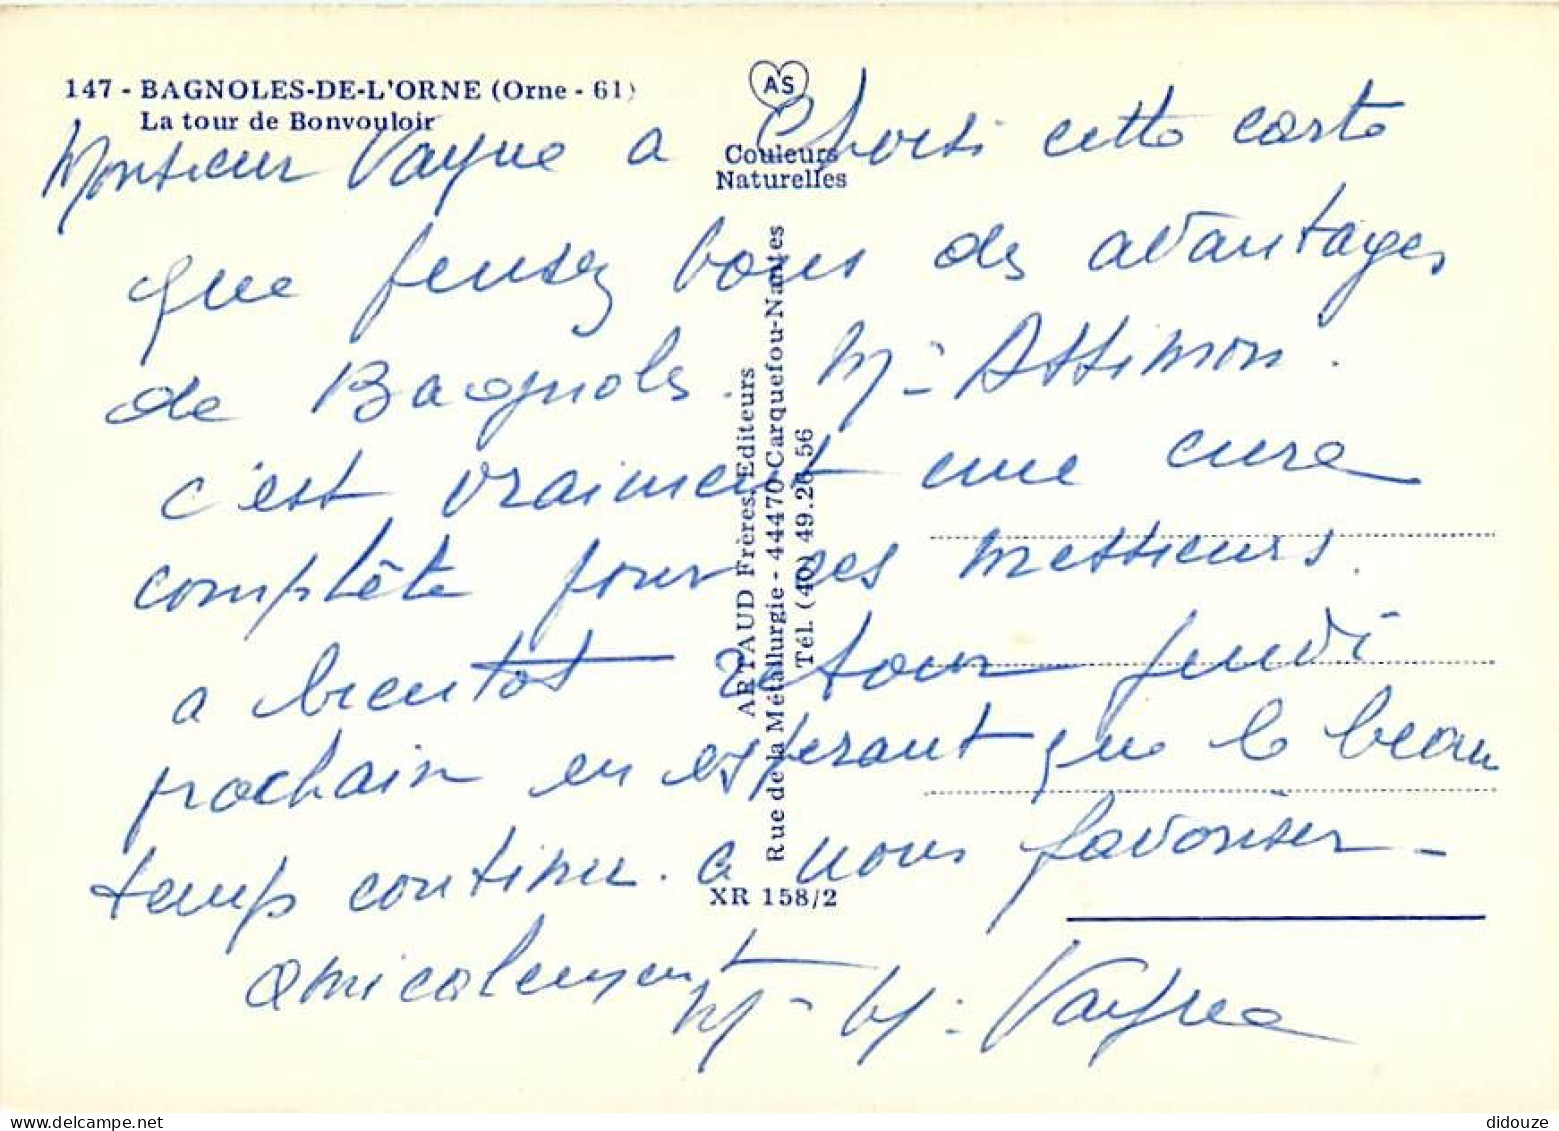 147 - BAGNOLES-DE-L'ORNE (Orne - 61)
La tour de Bonvouloir
AS
Couleurs
Naturelles
Monsieur Vayne a Choisi cette carte
que pensez vous des avantages
de Bagnols. M - Assimon.
c'est vraiment une cure
complète pour ces messieurs.
a bientot retour jeudi
prochain en esperant que le beau
temps continu. a nous favoriser -
amicalement
M - M - Vayne
ARTAUD Frères, Editeurs
Rue de la Métallurgie - 44470 Carquefou-Nantes
Tél. (40) 49.26 56
XR 158/2
didouze